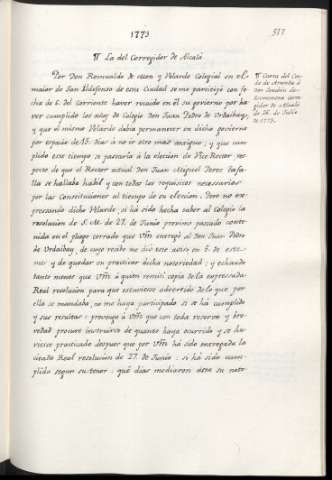 1773
517
¶ La del Corregidor de Alcalá
Por Don Romualdo de Mon y Velarde Colegial en el
maior de San Ildefonso de esa Ciudad se me participó con fe-
cha de 6. del corriente haver recaido en él su govierno por ha-
ver cumplido los años de Colegio Don Juan Pedro de Urdaibay,
y que el mismo Velarde debia permanecer en dicho govierno
por espacio de 15. dias à no ir otro mas antiguo; y que cum-
plido este tiempo se pasaria à la elección de Vice-Rector res-
pecto de que el Rector actual Don Juan Miguel Perez Tafa-
lla se hallaba habil y con todos los requisitos necesarios
por las Constituciones al tiempo de su eleccion. Pero no ex-
presando dicho Velarde, si ha sido hecha saber al Colegio la
resolucion de S. M. de 27. de Junio proximo pasado conte-
nida en el pliego cerrado que Vm entregó al Don Juan Pedro
de Urdaibay, de cuyo recibo me dió este aviso en 5. de este
mes y de quedar en practicar dicha notoriedad; y echando
tanto menos que Vm à quien remití copia de la expresada
Real resolucion para que estuviese advertido de lo que por
ella se mandaba, no me haya participado si se há cumplido
y sus resultas: prevengo à Vm que con toda reserva y bre-
vedad procure instruirse de quanto haya ocurrido y se hu-
viese practicado despues que por Vm há sido entregada la
citada Real resolucion de 27. de Junio: si há sido cum-
plida segun su tenor: qué dias mediaron desde su noti-
¶ Carta del Con-
de de Aranda à
Don
corre-
gidor de Alcalá
de
de 1773.